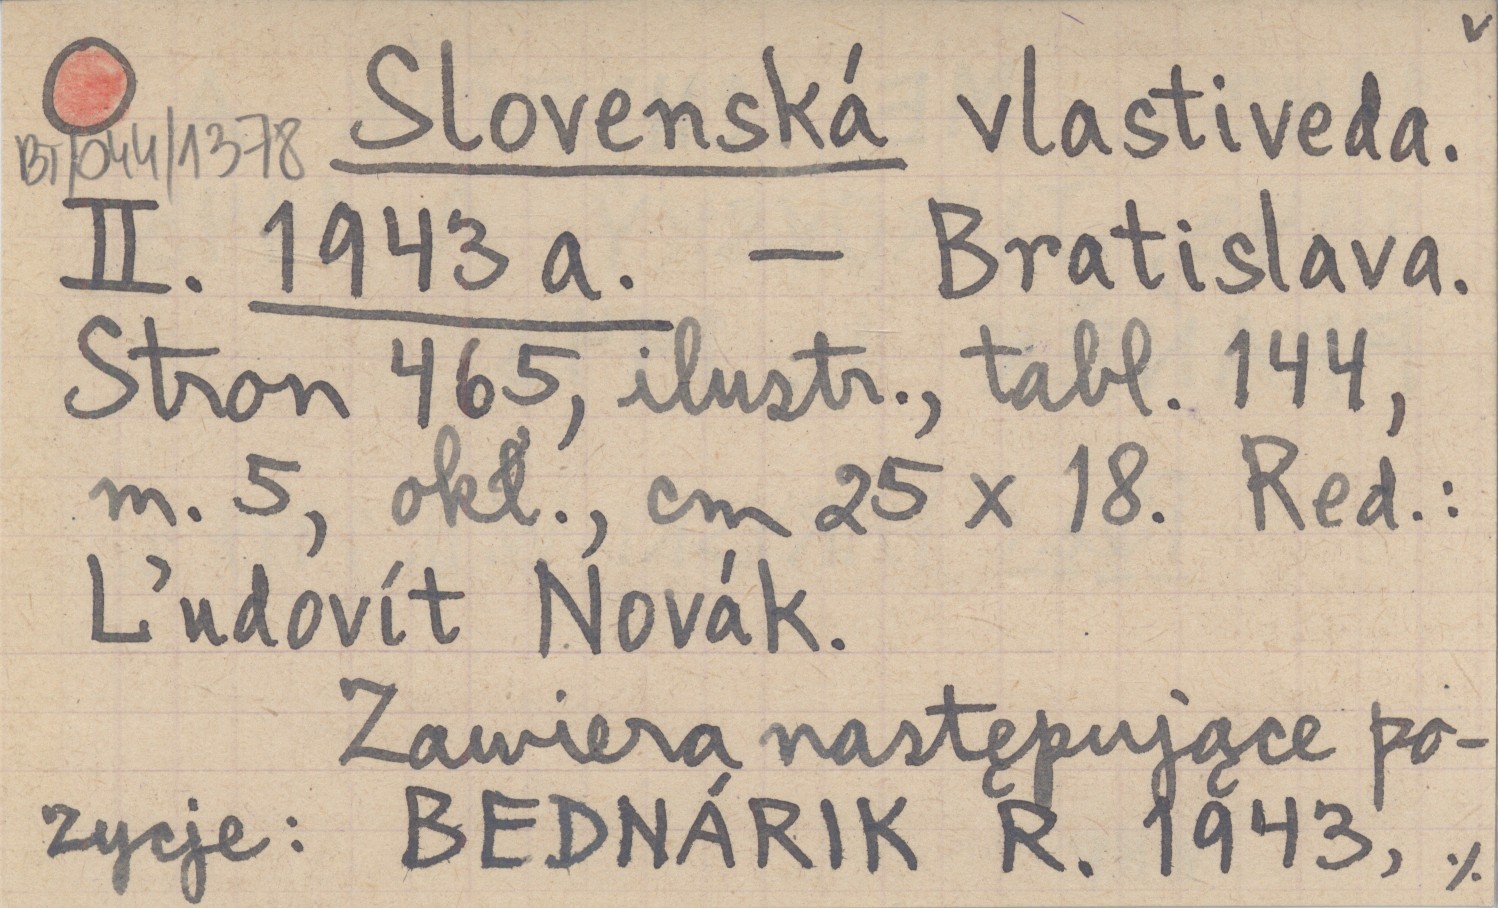 v
Slovenská vlastiveda.
BT/044/1378
II. 1943 a. — Bratislava.
Stron 465, ilustr., tabl. 144,
m. 5, okł., cm 25 x 18. Red.:
Ľudovít Novák.
Zawiera następujące po-
zycje: BEDNÁRIK R. 1943, ./.